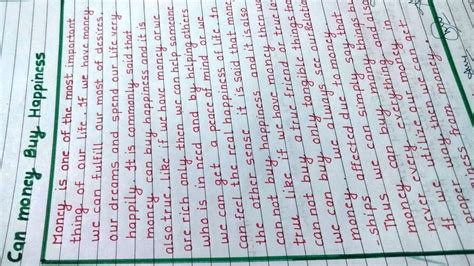 Can money Buy Happiness
Money is one of the most important
thing of our life. If we have money
we can fulfill our most of desires,
our dreams and spend our life very
happily. It is commonly said that
money can buy happiness and it is
also true, like if we have money or we
are rich only then we can help someone
who is in need and by helping others
we can get a peace of mind or we
can feel the real happiness of life. In
the other sense, it is said that money
can not buy happiness and it is also
true. Like if we have money then we
can not buy a true friend or true
can not buy any tangible things
we can only always see our
money affected due to money that
smiles. we can simply say that
Thus can buy many things and also
money everything in
never every. you can get
if we utilize then money
happiness from